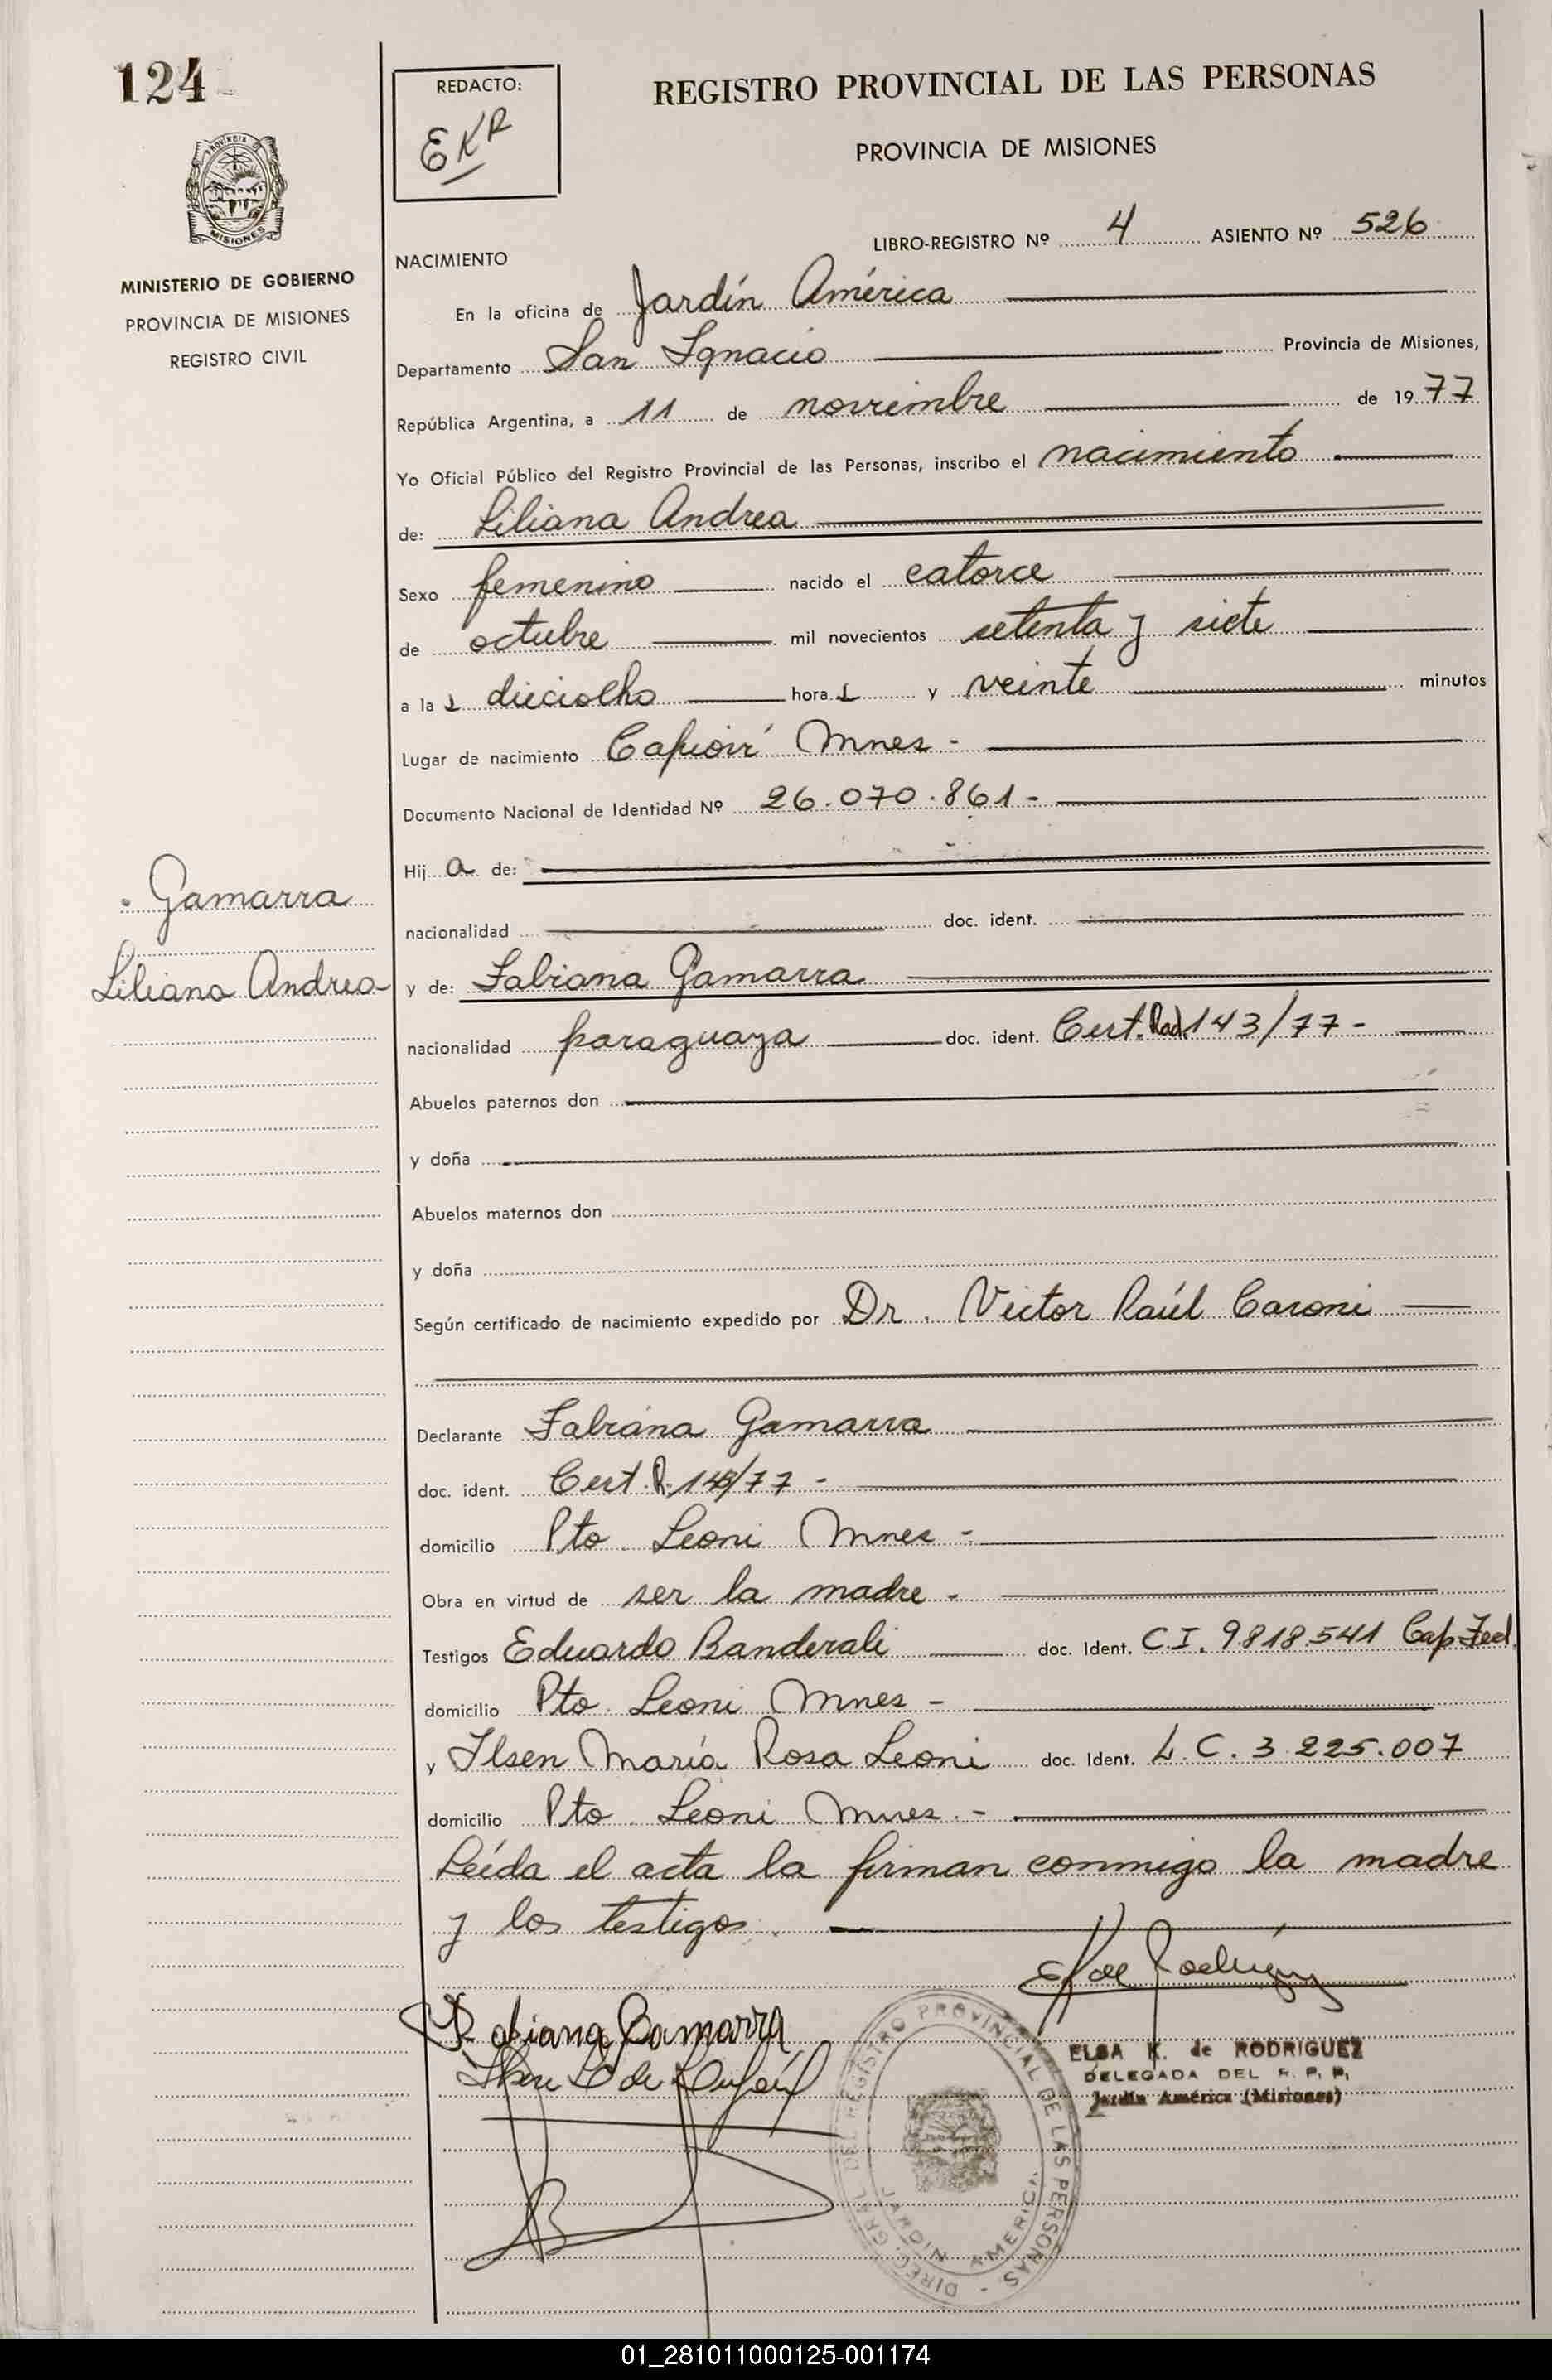 124
REDACTO:
EKR
REGISTRO PROVINCIAL DE LAS PERSONAS
PROVINCIA DE MISIONES
PROVINCIA DE
MISIONES
MINISTERIO DE GOBIERNO
PROVINCIA DE MISIONES
REGISTRO CIVIL
LIBRO-REGISTRO Nº 4 ASIENTO Nº 526
NACIMIENTO
En la oficina de Jardín América
Departamento San Ignacio Provincia de Misiones,
República Argentina, a 11 de noviembre de 1977
Yo Oficial Público del Registro Provincial de las Personas, inscribo el nacimiento
de: Liliana Andrea
Sexo femenino nacido el catorce
de octubre mil novecientos setenta y siete
a las dieciocho horas y veinte minutos
Lugar de nacimiento Capioví Mnes -
Documento Nacional de Identidad Nº 26.070.861 -
Hija de:
nacionalidad doc. ident.
Gamarra
Liliana Andrea
y de: Fabiana Gamarra
nacionalidad paraguaya doc. ident. Cert. Rad. 143/77 -
Abuelos paternos don
y doña
Abuelos maternos don
y doña
Según certificado de nacimiento expedido por Dr. Victor Raúl Caroni
Declarante Fabiana Gamarra
doc. ident. Cert. R. 143/77 -
domicilio Pto. Leoni Mnes -
Obra en virtud de ser la madre -
Testigos Eduardo Banderali doc. Ident. C.I. 9818.541 Cap. Fed.
domicilio Pto. Leoni Mnes -
y Ilsen María Rosa Leoni doc. Ident. L.C. 3.225.007
domicilio Pto. Leoni Mnes. -
Leída el acta la firman conmigo la madre
y los testigos.
E K de Rodríguez
Fabiana Gamarra
ELSA K. de RODRIGUEZ
DELEGADA DEL R. P. P.
Jardín América (Misiones)
DIREC. GRAL. DEL REGISTRO PROVINCIAL DE LAS PERSONAS -
JARDIN AMERICA
01_281011000125-001174